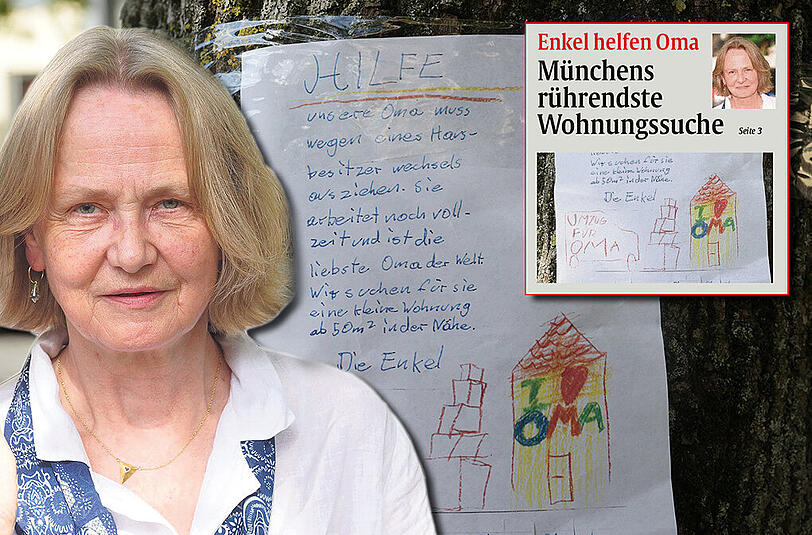 HILFE
unsere Oma muss
wegen eines Haus-
besitzer wechsels
ausziehen. Sie
arbeitet noch voll-
zeit und ist die
liebste Oma der Welt.
Wir suchen für sie
eine kleine Wohnung
ab 50m² in der Nähe.
Die Enkel
I ♥
OMA
Enkel helfen Oma
Münchens
rührendste
Wohnungssuche
Seite 3
Wir suchen für sie
eine kleine Wohnung
ab 50m² in der Nähe.
Die Enkel
UMZUG
FÜR
OMA
I ♥
OMA